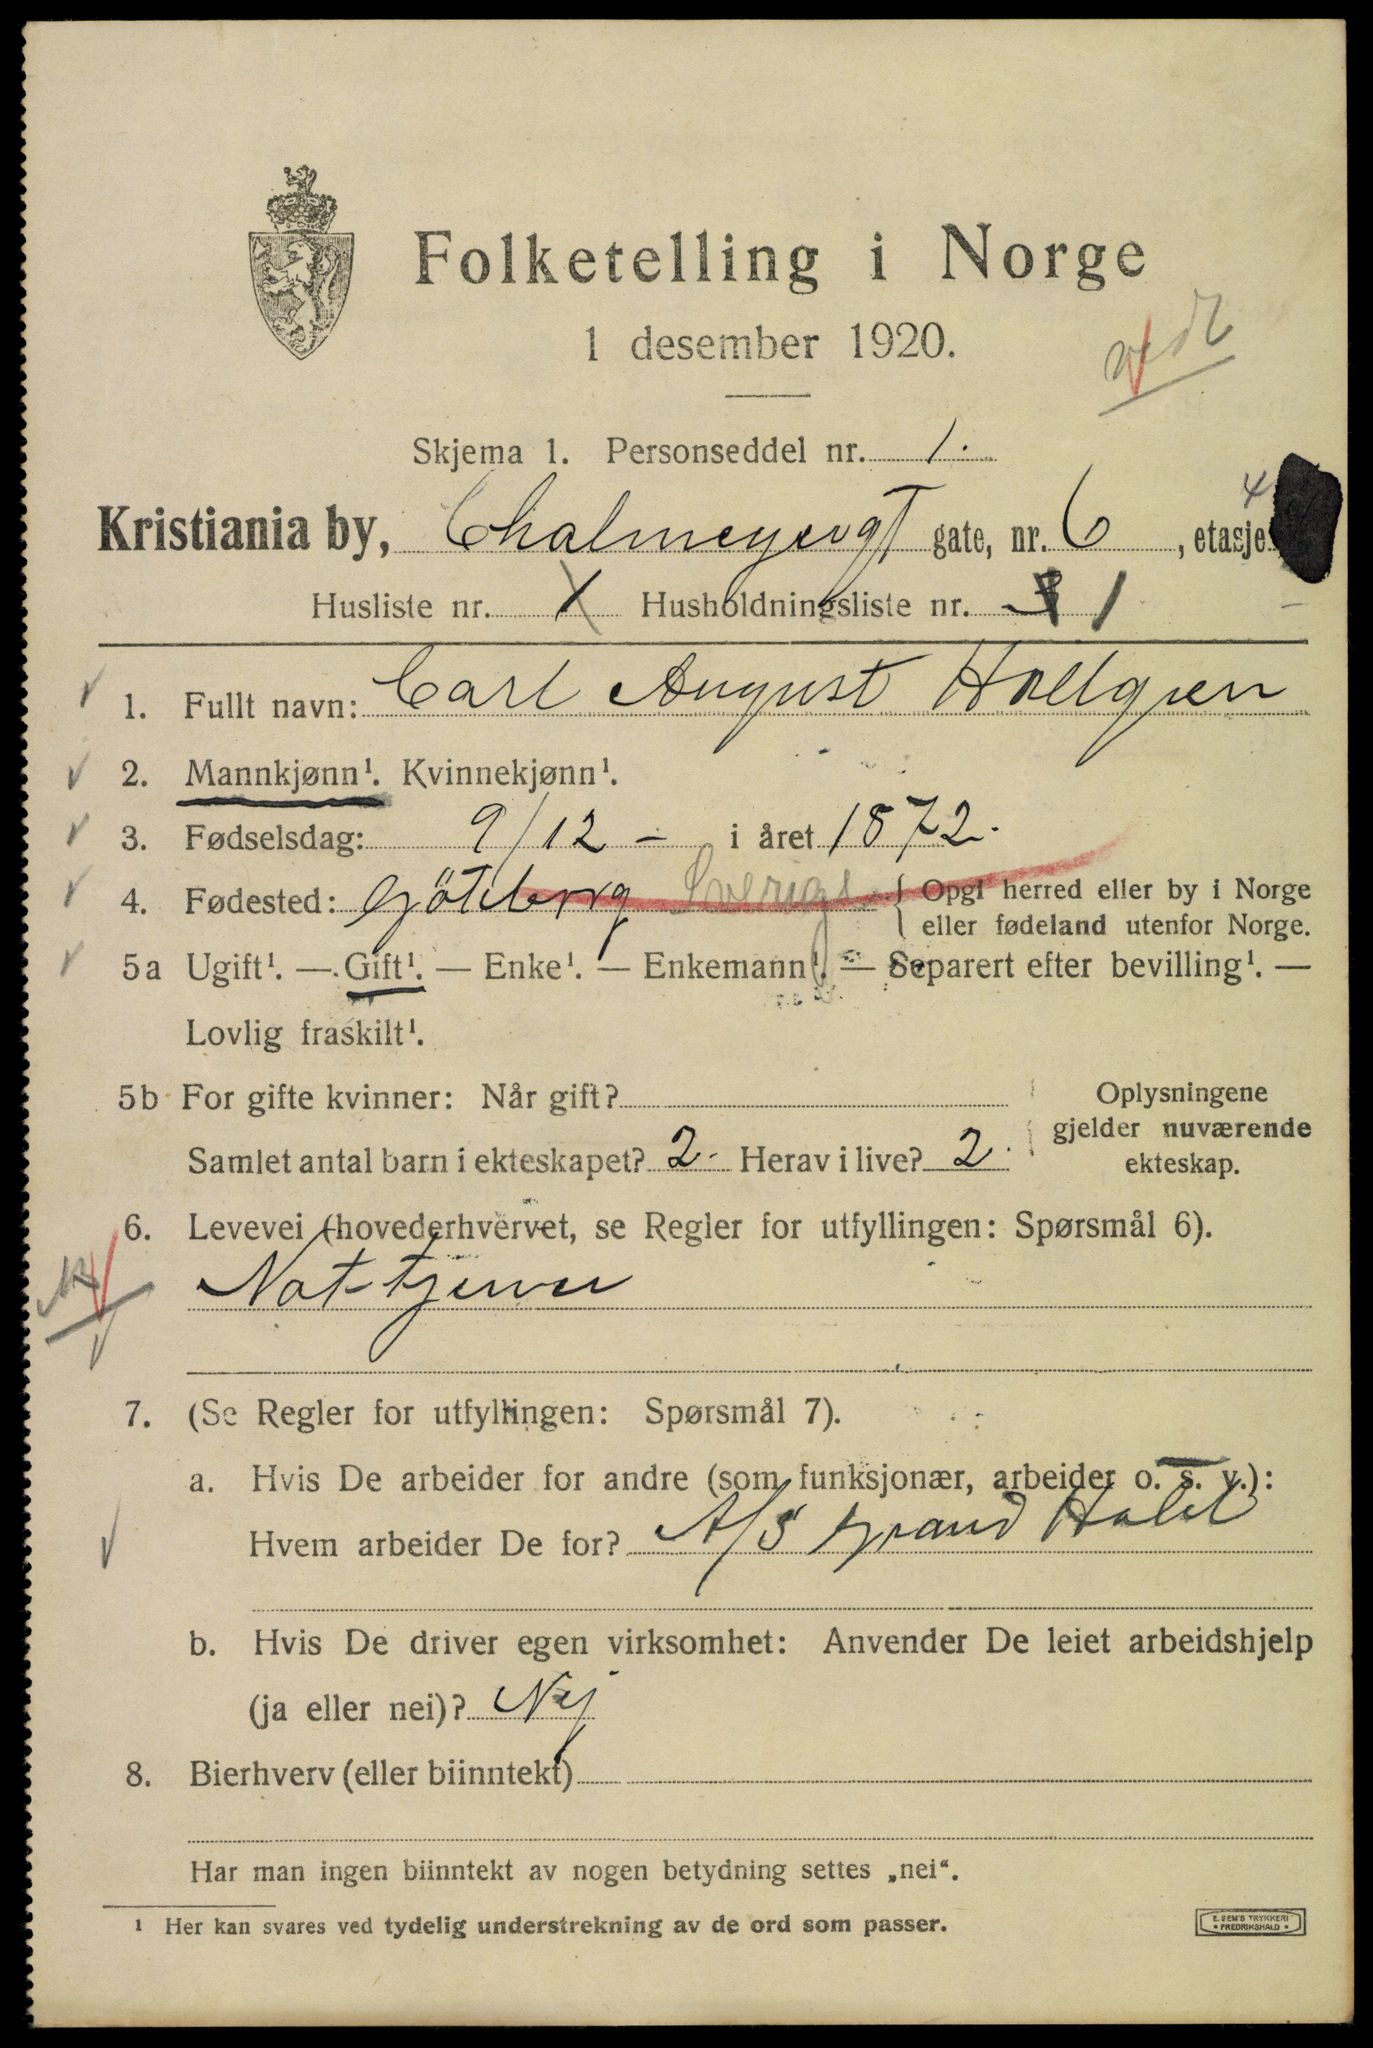 Folketelling i Norge
1 desember 1920.
Skjema 1. Personseddel nr. 1.
Kristiania by, Chalmeyersgt gate, nr. 6, etasje 4
Husliste nr. 1 Husholdningsliste nr. 1
1. Fullt navn: Carl August Hallgren
2. Mannkjønn¹. Kvinnekjønn¹.
3. Fødselsdag: 9/12 - i året 1872.
4. Fødested: Göteborg Sverige { Opgi herred eller by i Norge
eller fødeland utenfor Norge.
5a Ugift¹. — Gift¹. — Enke¹. — Enkemann¹. — Separert efter bevilling¹. —
Lovlig fraskilt¹.
5b For gifte kvinner: Når gift? Oplysningene
gjelder nuværende
Samlet antal barn i ekteskapet? 2. Herav i live? 2. ekteskap.
6. Levevei (hovederhvervet, se Regler for utfyllingen: Spørsmål 6).
Nat-tjener
7. (Se Regler for utfyllingen: Spørsmål 7).
a. Hvis De arbeider for andre (som funksjonær, arbeider o. s. v.):
Hvem arbeider De for? A/S Grand Hotel
b. Hvis De driver egen virksomhet: Anvender De leiet arbeidshjelp
(ja eller nei)? Nej
8. Bierhverv (eller biinntekt)
Har man ingen biinntekt av nogen betydning settes „nei“.
¹ Her kan svares ved tydelig understrekning av de ord som passer.
E. SEM'S TRYKKERI
FREDRIKSHALD